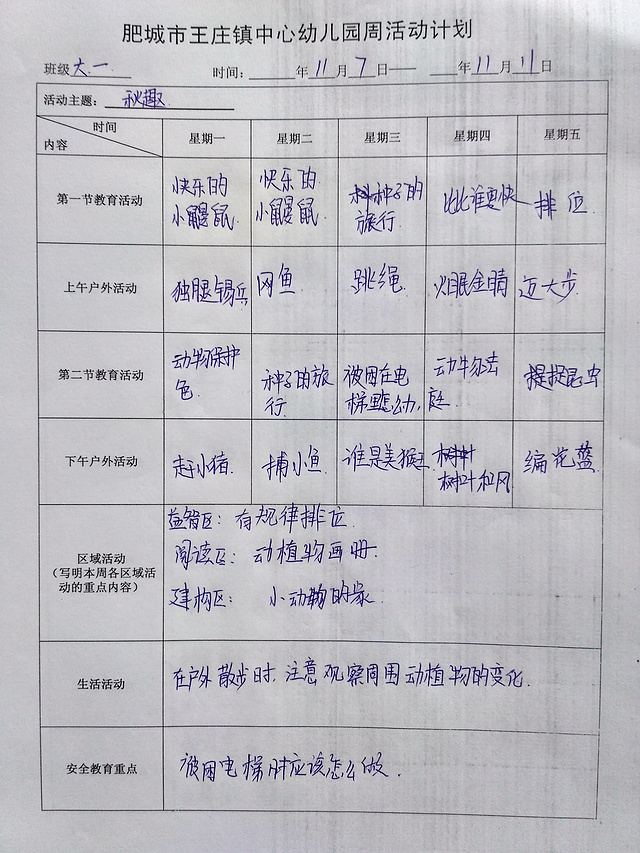 肥城市王庄镇中心幼儿园周活动计划
班级大一 时间: 年11月7日—— 年11月11日
活动主题: 秋趣
时间
内容
星期一 星期二 星期三 星期四 星期五
第一节教育活动 快乐的小鼹鼠 快乐的小鼹鼠 种子的旅行 比比谁更快 排位
上午户外活动 独腿锡兵 网鱼 跳绳 火眼金睛 迈大步
第二节教育活动 动物保护色 种子的旅行 被困在电梯 动物法庭 捉昆虫
下午户外活动 赶小猪 捕小鱼 谁是美猴王 树叶和风 编花蓝
区域活动
(写明本周各区域活
动的重点内容)
益智区: 有规律排位.
阅读区: 动植物画册.
建构区: 小动物的家.
生活活动 在户外散步时,注意观察周围动植物的变化.
安全教育重点 被困电梯时应该怎么做.